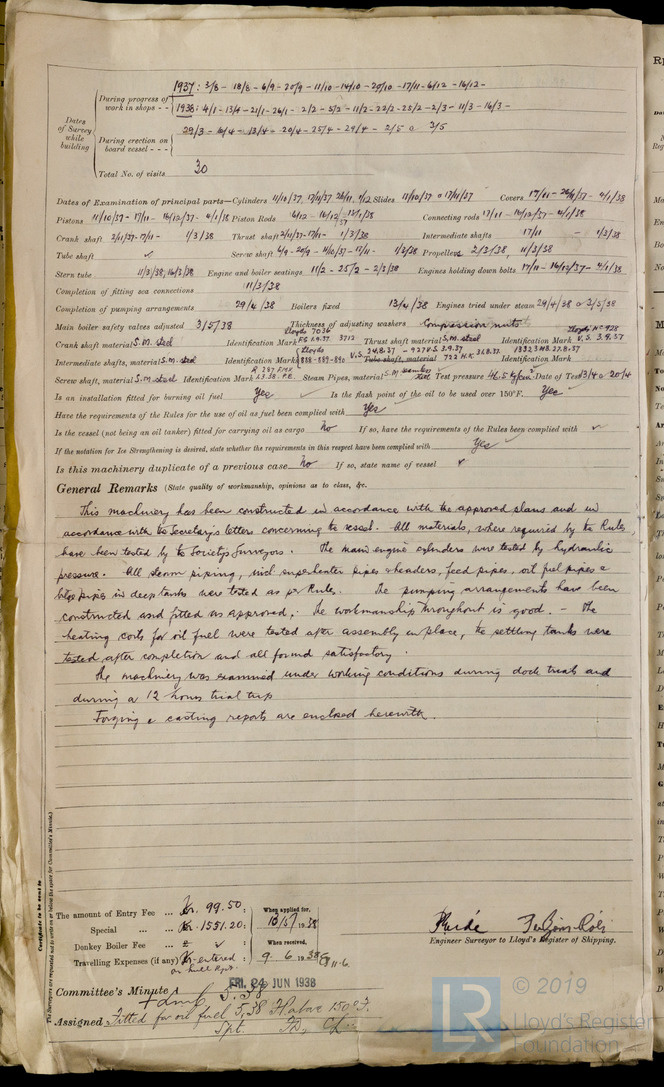 1937: 3/8 - 18/8 - 6/9 - 20/9 - 11/10 - 14/10 - 20/10 - 17/11 - 6/12 - 16/12 -
During progress of work in shops - -
1938: 4/1 - 13/1 - 21/1 - 26/1 - 2/2 - 5/2 - 11/2 - 22/2 - 25/2 - 2/3 - 11/3 - 16/3 -
Dates of Survey while building
During erection on board vessel - - -
29/3 - 13/4 - 20/4 - 25/4 - 29/4 - 2/5 & 3/5
Total No. of visits 30
Dates of Examination of principal parts—Cylinders 11/10/37, 17/11/37 Slides 11/10/37 & 17/11/37 Covers 17/11 - 4/1/38
Pistons 11/10/37 - 17/11 - 16/12/37 - 4/1/38 Piston Rods 6/12 - 16/12/37 Connecting rods 17/11 - 16/12/37 - 4/1/38
Crank shaft 2/11/37 - 17/11 - 1/3/38 Thrust shaft 2/11/37 - 17/11 - 1/3/38 Intermediate shafts 17/11 - 1/3/38
Tube shaft ✓ Screw shaft 6/9 - 20/9 - 11/10/37 - 17/11 - 1/3/38 Propeller 2/3/38, 11/3/38
Stern tube 11/3/38, 16/3/38 Engine and boiler seatings 11/2 - 25/2 - 2/3/38 Engines holding down bolts 17/11 - 16/12/37 - 4/1/38
Completion of fitting sea connections 11/3/38
Completion of pumping arrangements 29/4/38 Boilers fixed 13/4/38 Engines tried under steam 29/4/38 & 3/5/38
Main boiler safety valves adjusted 3/5/38 Thickness of adjusting washers Compression nuts
Crank shaft material S.M. steel Identification Mark Lloyds 7036 3712 Thrust shaft material S.M. steel Identification Mark Lloyds No 928 V.S. 3.9.37
Intermediate shafts, material S.M. steel Identification Marks Lloyds 888-889-890 V.S. 24.8.37 - 927 V.S. 3.9.37 Tube shaft, material Identification Mark
Screw shaft, material S.M. steel Identification Mark Steam Pipes, material S.M. seamless steel Test pressure 46.5 kg/cm² Date of Test 13/4 & 20/4
Is an installation fitted for burning oil fuel Yes ✓ Is the flash point of the oil to be used over 150°F. Yes
Have the requirements of the Rules for the use of oil as fuel been complied with Yes
Is the vessel (not being an oil tanker) fitted for carrying oil as cargo No If so, have the requirements of the Rules been complied with ✓
If the notation for Ice Strengthening is desired, state whether the requirements in this respect have been complied with Yes
Is this machinery duplicate of a previous case No If so, state name of vessel ✓
General Remarks (State quality of workmanship, opinions as to class, &c.
This machinery has been constructed in accordance with the approved plans and in
accordance with the Secretary's letters concerning the vessel. All materials, where required by the Rules
have been tested by the Society's Surveyors. The main engine cylinders were tested by hydraulic
pressure. All steam piping, incl. superheater pipes & headers, feed pipes, oil fuel pipes &
bilge pipes in deep tanks were tested as per Rules. The pumping arrangements have been
constructed and fitted as approved, the workmanship throughout is good. - The
heating coils for oil fuel were tested after assembly in place, the settling tanks were
tested after completion and all found satisfactory.
The machinery was examined under working conditions during dock trials and
during a 12 hours trial trip
Forging & casting reports are enclosed herewith.
Certificate to be sent to
The Surveyors are requested not to write on or below the space for Committee's Minute.
The amount of Entry Fee ... Kr. 99.50 :
When applied for, 10/5/1938
Special ... ... Kr. 1551.20 :
Donkey Boiler Fee ... £ ✓ :
When received,
Travelling Expenses (if any) Kr. entered : 9.6.1938
on hull rpt.
Engineer Surveyor to Lloyd's Register of Shipping.
Committee's Minute FRI. 24 JUN 1938
+ LMC 5.38
Assigned Fitted for oil fuel 5.38 F.P. above 150°F.
Spt. FD, CL.
LR © 2019
Lloyd's Register
Foundation